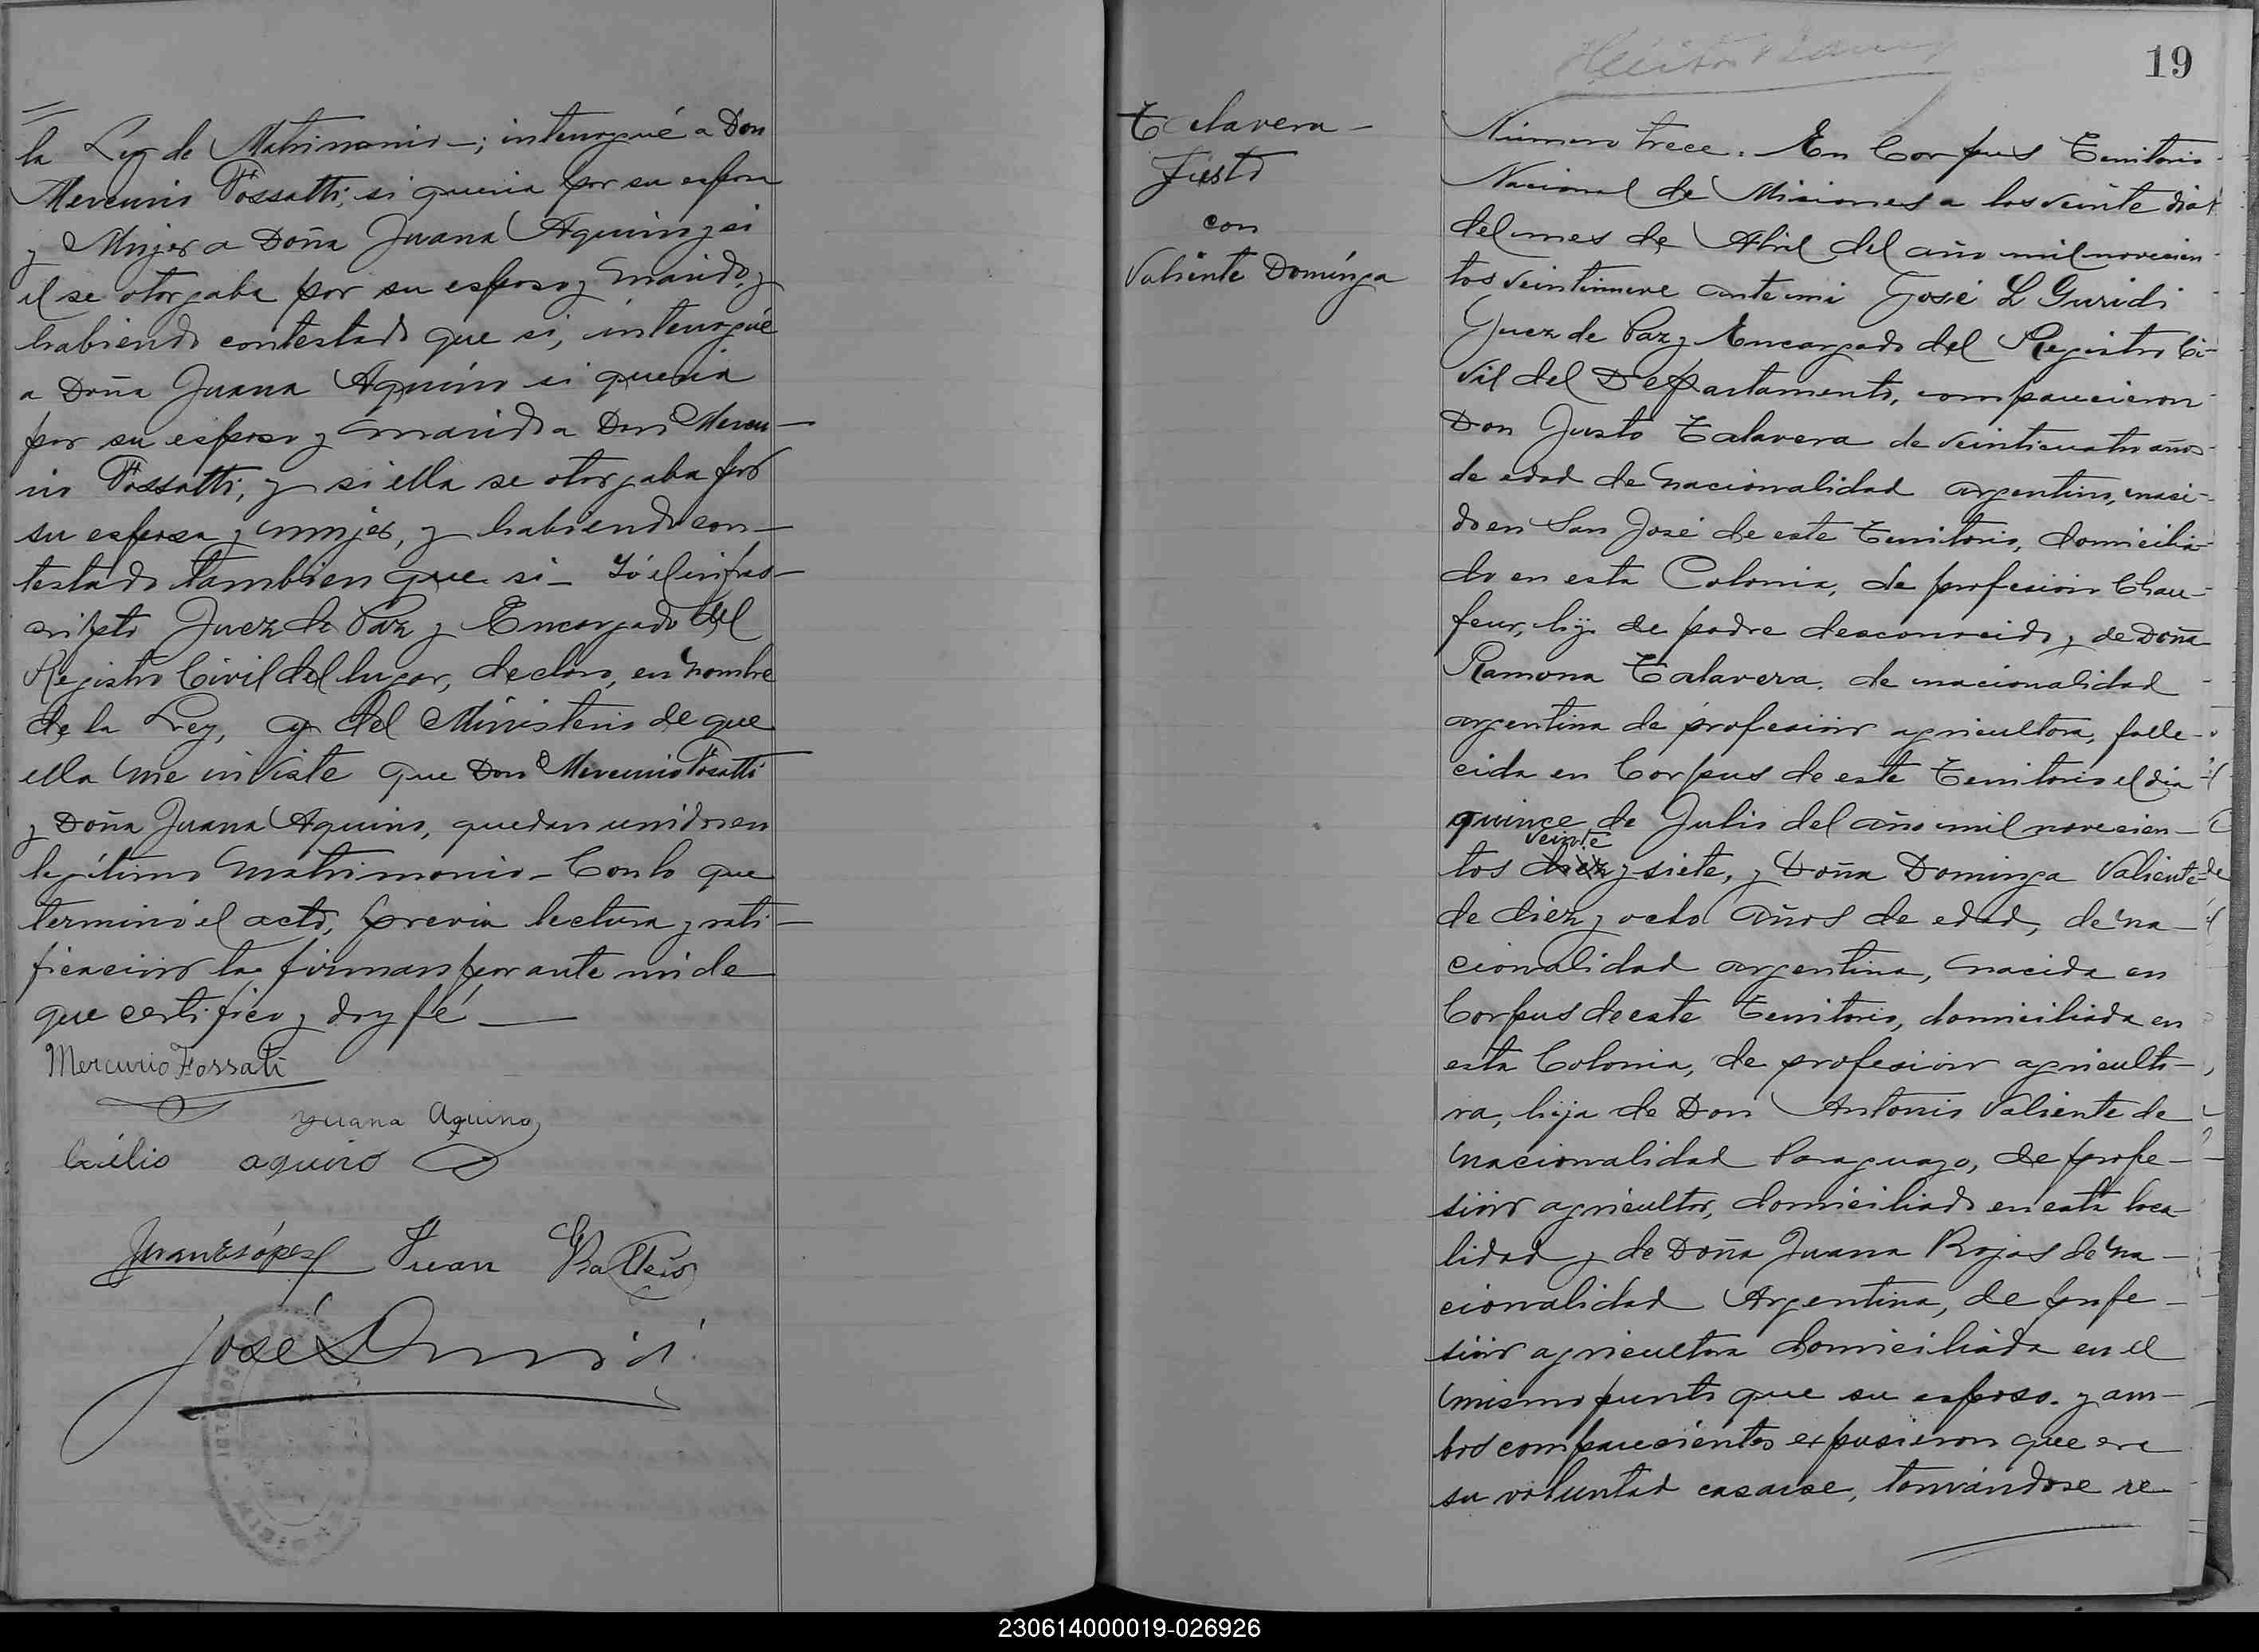 la Ley de Matrimonio—; interrogué a Don
Mercurio Fossatti; si queria por su esposa
y Mujer a Doña Juana Aquino y si
el se otorgaba por su esposo y marido, y
habiendo contestado que si, interrogué
a Doña Juana Aquino si queria
por su esposo y marido a Don Mercu—
rio Fossatti, y si ella se otorgaba por
su esposa y mujer, y habiendo con—
testado tambien que si— Yó el infras—
cripto Juez de Paz y Encargado del
Registro Civil del lugar, declaro, en nombre
de la Ley, y del Ministerio de que
ella me inviste que Don Mercurio Fosatti
y Doña Juana Aquino, quedan unidos en
legítimo matrimonio— Con lo que
terminó el acto, previa lectura y rati—
ficacion la firman por ante mi de
que certifico y doy fé—
Mercurio Fossati
Juana Aquino
aquino
Juan
José L Guridi
19
Talavera—
Justo
con
Valiente Domínga
Número trece. En Corpus Territorio
Nacional de Misiones a los veinte dias
del mes de Abril del año mil novecien—
tos veintinueve ante mi José L Guridi
Juez de Paz y Encargado del Registro Ci—
vil del Departamento, comparecieron
Don Justo Talavera de veinticuatro años
de edad de nacionalidad argentino, naci—
do en San José de este Territorio, domicilia—
do en esta Colonia, de profesion Chau—
feur, hijo de padre desconocido y de Doña
Ramona Talavera. de nacionalidad
argentina de profesion agricultora, falle—
cida en Corpus de este Territorio el dia
quince de Julio del año mil novecien—
veinte
tos diez y siete, y Doña Dominga Valiente
de diez y ocho años de edad, de na—
cionalidad argentina, nacida en
Corpus de este Territorio, domiciliada en
esta Colonia, de profesion agriculto—
ra, hija de Don Antonio Valiente de
nacionalidad Paraguayo, de profe—
sion agricultor, domiciliado en esta loca—
lidad y de Doña Juana Rojas de na—
cionalidad Argentina, de profe—
sión agricultora domiciliada en el
mismo punto que su esposo. y am—
bos comparecientes expusieron que era
su voluntad casarse, tomándose re
230614000019-026926